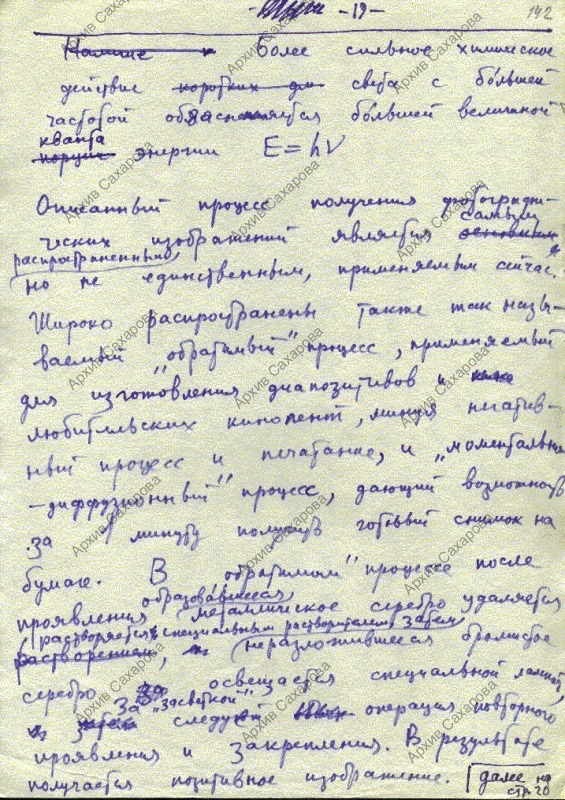 -19-
142
Более сильное химическое
действие коротких дл света с бо́льшей
частотой объясняется бо́льшей величиной
кванта
порции энергии E=hν
Описанный процесс получения фотографи-
ческих изображений является самым
распространенным,
но не единственным, применяемым сейчас.
Широко распространены также так назы-
ваемый "обратимый" процесс, применяемый
для изготовления диапозитивов и
любительских кинолент, минуя негатив-
ный процесс и печатание, и "моментальный
-диффузионный" процесс, дающий возможность
за 1 минуту получить готовый снимок на
бумаге. В "обратимом" процессе после
образовавшееся
проявления металлическое серебро удаляется
(растворяется специальным растворителем), затем
растворением, неразложившееся бромистое
серебро освещается специальной лампой,
За "засветкой"
следует операция повторного
проявления и закрепления. В результате
получается позитивное изображение. далее на
стр 20
Архив Сахарова